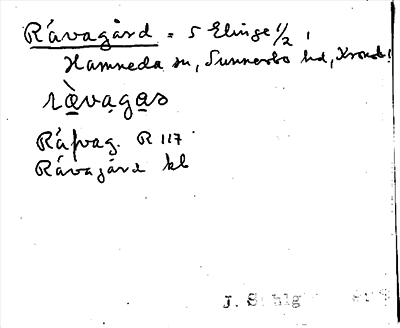 Råvagård = 5 Elinge 1/2,
Hamneda sn, Sunnerbo hd, Kronob.
ràvagas
Råfvag. R 117
Råvagård kb
J. S hlg